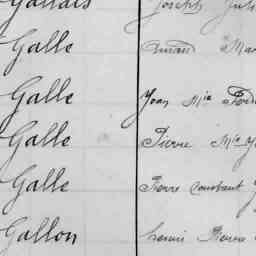 Gallais Joseph Juli
Galle Armand Mar
Galle Jean Mie
Galle Pierre Mie
Galle Pierre Constant
Gallon Pierre